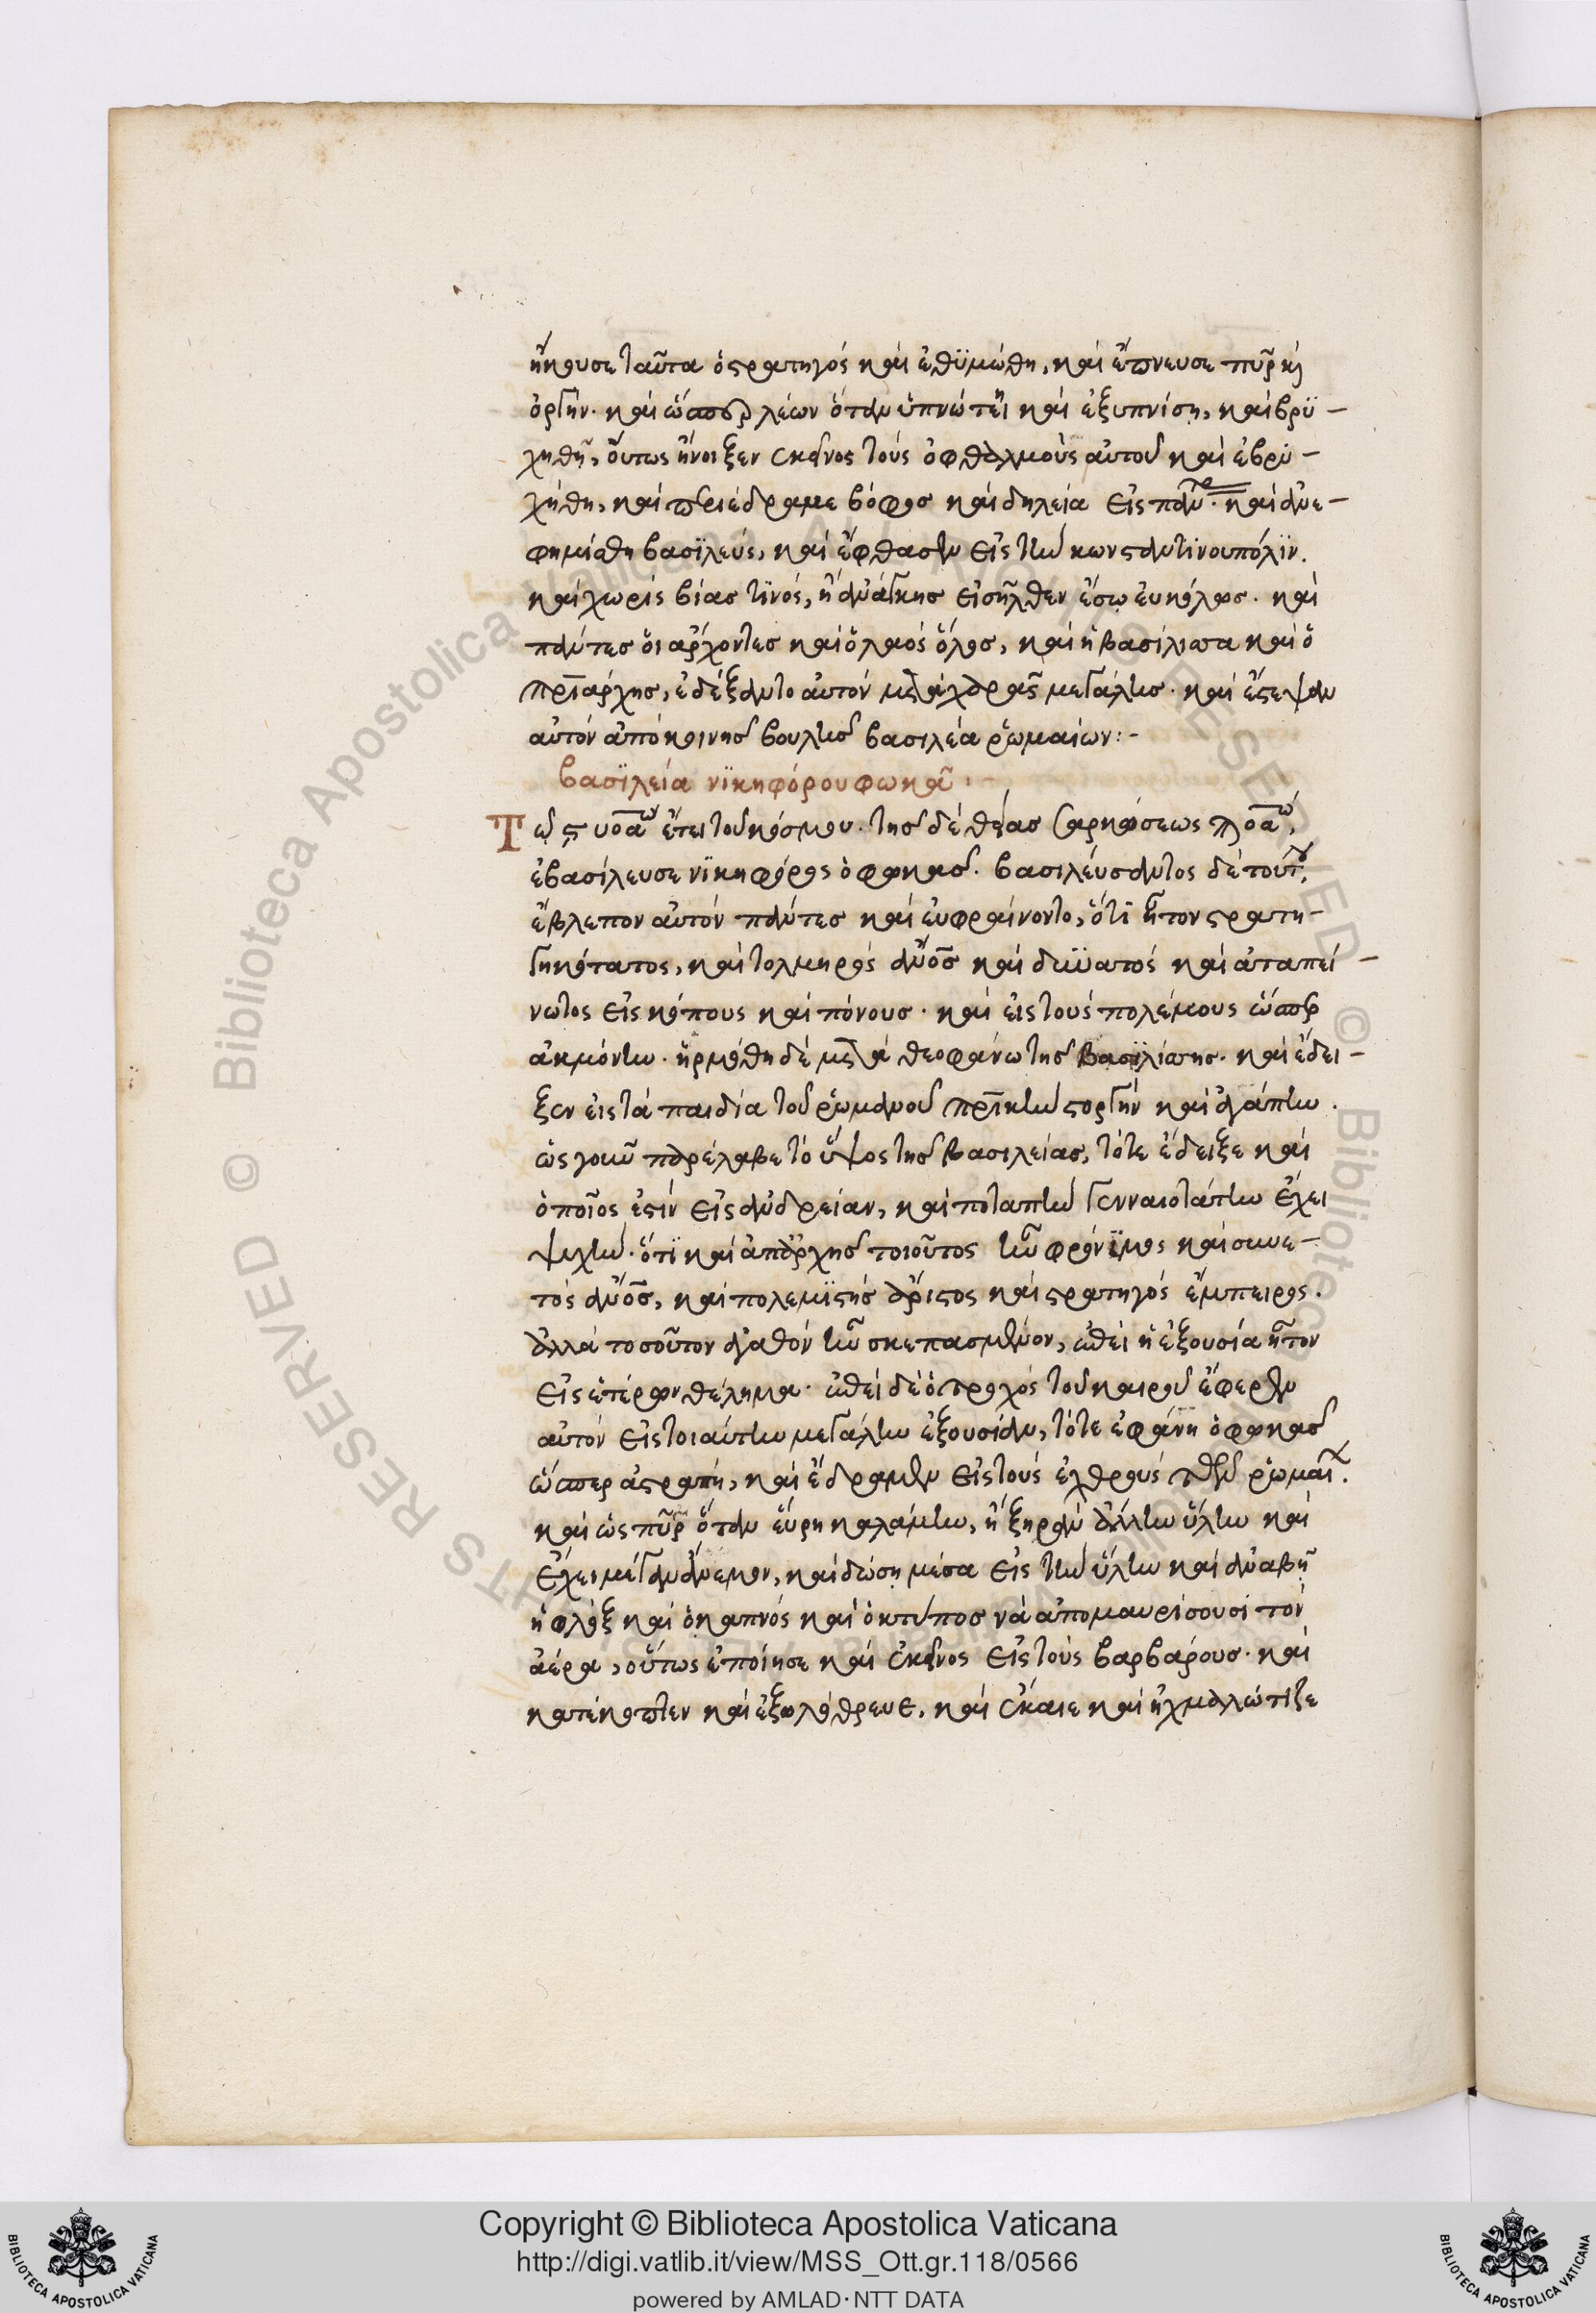 ἤκουσε ταῦτα ὁ στρατηγός καί ἐθϋμώθη, καί ἔπνευσε πῦρ καὶ
ὀργήν. καί ὥσπερ λέων ὅταν ὑπνώττει καί ἐξυπνίση, καί βρϋ–
χηθῆ, οὕτως ἤνοιξεν ἐκεῖνος τούς ὀφθαλμούς αὐτοῦ καί ἐβρϋ–
χήθη, καί περιέδραμε βόφος καί δηλεία εἰς παν. καί ἀνε–
φημίσθη βασϊλεύς, καί ἔφθασεν εἰς τήν κωνσταντϊνουπόλϊν.
καί χωρίς βίας τϊνός, ἤ ἀνάγκης εἰσῆλθεν ἔσω εὐκόλως. καί
πάντες ὅι ἄρχοντες καί ὁ λαός ὅλος, καί ἡ βασίλισσα καί ὁ
πριάρχης, ἐδέξαντο αὐτόν μετά χαρᾶς μεγάλης. καί ἔστεψαν
αὐτόν ἀπό κοινῆς βουλῆς βασιλέα ῥωμαίων:–
βασϊλεία νϊκηφόρου φωκᾶ.
Τῶ ϛυοαω ἔτει τοῦ κόσμου. τῆς δέ θείας σαρκώσεως ϡοαω,
ἐβασίλευσε νϊκηφόρος ὁ φωκᾶς. βασιλεύσαντος δέ τούτου,
ἔβλεπον αὐτόν πάντες καί εὐφραίνοντο, ὅτϊ ἦτον στρατη–
γηκότατος, καί τολμηρός ἀνος καί δυνατός καί ἀταπεί–
νωτος εἰς κόπους καί πόνους. καί εἰς τούς πολέμους ὥσπερ
ἀκμόνην. ἡρμόθη δέ μετά θεοφάνω τῆς βασϊλίσσης. καί ἔδει–
ξεν εἰς τά παιδία τοῦ ῥωμανοῦ πρικήν στοργήν καί ἀγάπην.
ὡς γοῦν παρέλαβε τό ὕψος τῆς βασιλείας, τότε ἔδειξε καί
ὁποῖος ἐστίν εἰς ἀνδρείαν, καί ποταπήν γενναιοτάτην ἔχει
ψυχήν. ὅτϊ καί ἀπαρχῆς τοιοῦτος ἦν φρόνϊμος καί συνε–
τός ἀνος, καί πολεμϊστής ἄριστος καί στρατηγός ἔμπειρος.
ἀλλά τοσοῦτον ἀγαθόν ἦν σκεπασμένον, ἐπεί ἡ ἐξουσία ἦτον
εἰς ἑτέρων θέλημα. ἐπεί δέ ὁ τροχός τοῦ καιροῦ ἔφερεν
αὐτόν εἰς τοιαύτην μεγάλην ἐξουσίαν, τότε ἐφάνη ὁ φωκᾶς
ὥσπερ ἀστραπή, καί ἔδραμεν εἰς τούς ἐχθρούς τῶν ῥωμαί.
καί ὡς πῦρ ὅταν εὕρη καλάμην, ἤ ξηράν ἄλλην ὕλην καί
ἔχει μέγαν ἄνεμον, καί δώση μέσα εἰς τήν ὕλην καί ἀναβῆ
ἡ φλόξ καί ὁ καπνός καί ὁ κτύπος νά ἀπομαυρίσουσι τόν
ἀέρα, οὕτως ἐποίησε καί ἐκεῖνος εἰς τούς βαρβάρους. καί
κατέκοπτεν καί ἐξωλόθρευε, καί ἔκαιε καί ἠχμαλώτιζε
Copyright © Biblioteca Apostolica Vaticana
http://digi.vatlib.it/view/MSS_Ott.gr.118/0566
powered by AMLAD·NTT DATA